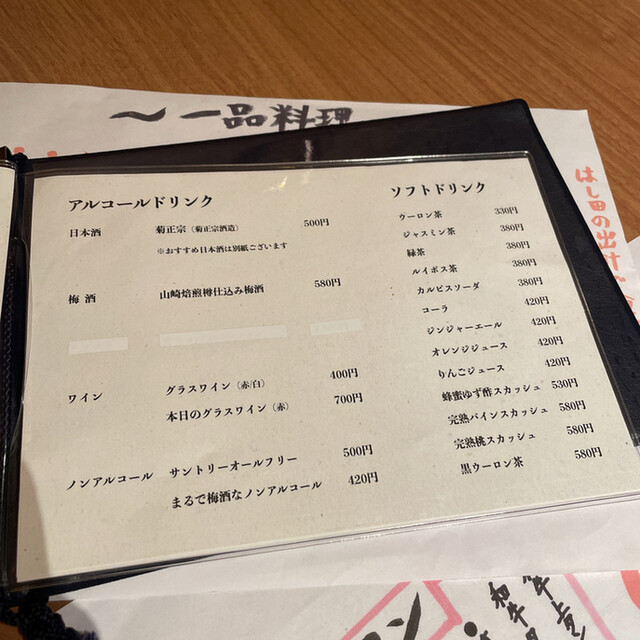 〜一品料理
はし田の出汁
アルコールドリンク
日本酒 菊正宗（菊正宗酒造） 500円
※おすすめ日本酒は別紙ございます
梅酒 山崎焙煎樽仕込み梅酒 580円
ワイン グラスワイン（赤/白） 400円
本日のグラスワイン（赤） 700円
ノンアルコール サントリーオールフリー 500円
まるで梅酒なノンアルコール 420円
ソフトドリンク
ウーロン茶 330円
ジャスミン茶 380円
緑茶 380円
ルイボス茶 380円
カルピスソーダ 380円
コーラ 420円
ジンジャーエール 420円
オレンジジュース 420円
りんごジュース 420円
蜂蜜ゆず酢スカッシュ 530円
完熟パインスカッシュ 580円
完熟桃スカッシュ 580円
黒ウーロン茶 580円
和牛